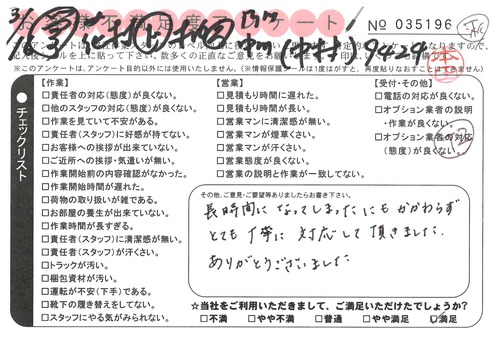 お客様不満足度アンケート！
№ 035196
記入後シールを上に貼って下さい。数多くの正直なご意見をお願い致します。
※このアンケートは、アンケート目的以外には使用いたしません。(※情報保護シールは1度はがすと、再度貼りなおすことはできません)
●チェックリスト
【作業】
□責任者の対応(態度)が良くない。
□他のスタッフの対応(態度)が良くない。
□作業を見ていて不安がある。
□責任者(スタッフ)に好感が持てない。
□お客様への挨拶が出来ていない。
□ご近所への挨拶・気遣いが無い。
□作業開始前の内容確認がなかった。
□作業開始時間が遅れた。
□荷物の取り扱いが雑である。
□お部屋の養生が出来ていない。
□作業時間が長すぎる。
□責任者(スタッフ)に清潔感が無い。
□責任者(スタッフ)が汗くさい。
□トラックが汚い。
□梱包資材が汚い。
□運転が不安(下手)である。
□靴下の履き替えをしてない。
□スタッフにやる気がみられない。
【営業】
□見積もり時間に遅れた。
□見積もり時間が長い。
□営業マンに清潔感が無い。
□営業マンが煙草くさい。
□営業マンが汗くさい。
□営業態度が良くない。
□営業の説明と作業が一致してない。
【受付・その他】
□電話の対応が良くない。
□オプション業者の説明
・作業が良くない。
□オプション業者の対応
(態度)が良くない。
その他、ご意見・ご要望等ありましたらお書き下さい。
長時間になってしまったにもかかわらず
とても丁寧に対応して頂きました
ありがとうございました
☆当社をご利用いただきまして、ご満足いただけたでしょうか？
□不満 □やや不満 □普通 □やや満足 ☑満足